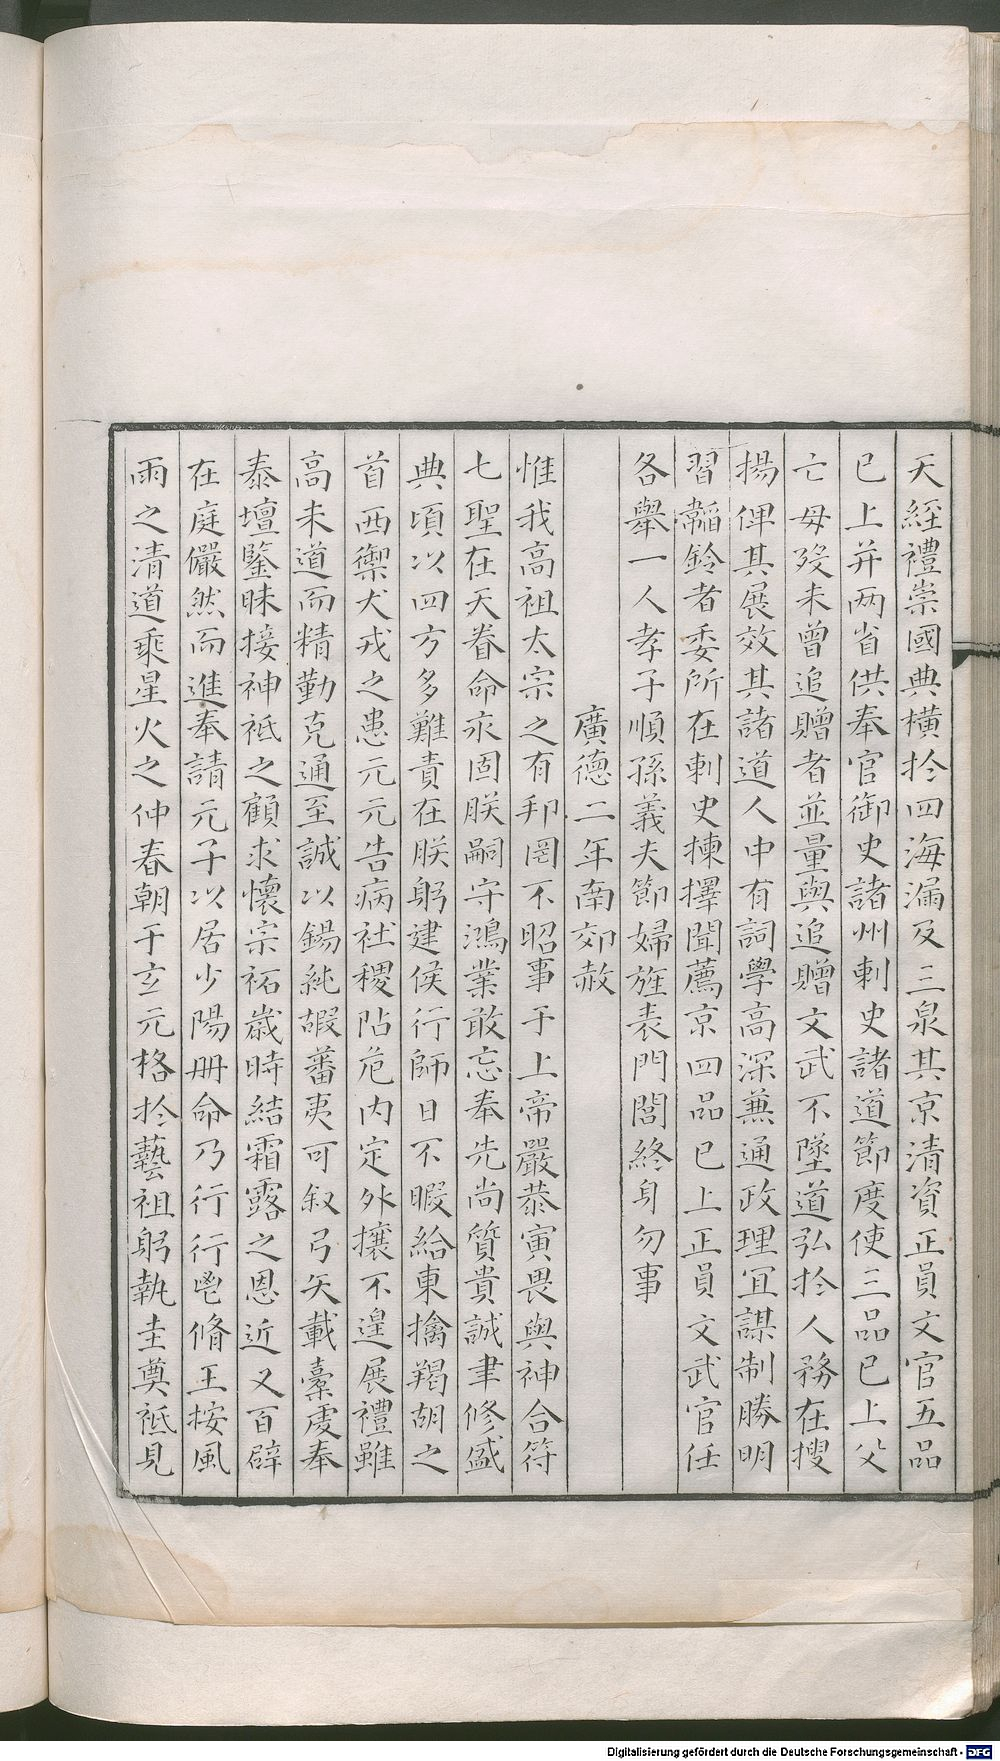 天經禮崇國典橫扵四海漏及三泉其京清資正員文官五品
已上并两省供奉官御史諸州刺史諸道節度使三品已上父
亡母殁未曾追贈者並量與追贈文武不墜道弘扵人務在搜
揚俾其展效其諸道人中有詞學高深兼通政理冝謀制勝明
習韜鈴者委所在刺史揀擇聞薦京四品已上正員文武官任
各舉一人孝子順孫義夫節婦旌表門閭終身勿事
廣德二年南郊赦
惟我高祖太宗之有邦罔不昭事于上帝嚴恭寅畏與神合符
七聖在天眷命永固朕嗣守鴻業敢忘奉先尚質貴誠聿修盛
典頃以四方多難責在朕躬建侯行師日不暇給東擒羯胡之
首西禦犬戎之患元元告病社稷阽危内定外攘不遑展禮雖
高未道而精勤克通至誠以錫純嘏蕃夷可叙弓矢載櫜虔奉
泰壇鑒昧接神祗之顧求懷宗祏歲時結霜露之恩近又百辟
在庭儼然而進奉請元子以居少陽册命乃行行鬯脩王按風
雨之清道乘星火之仲春朝于玄元格扵藝祖躬執圭奠祗見
Digitalisierung gefördert durch die Deutsche Forschungsgemeinschaft - DFG